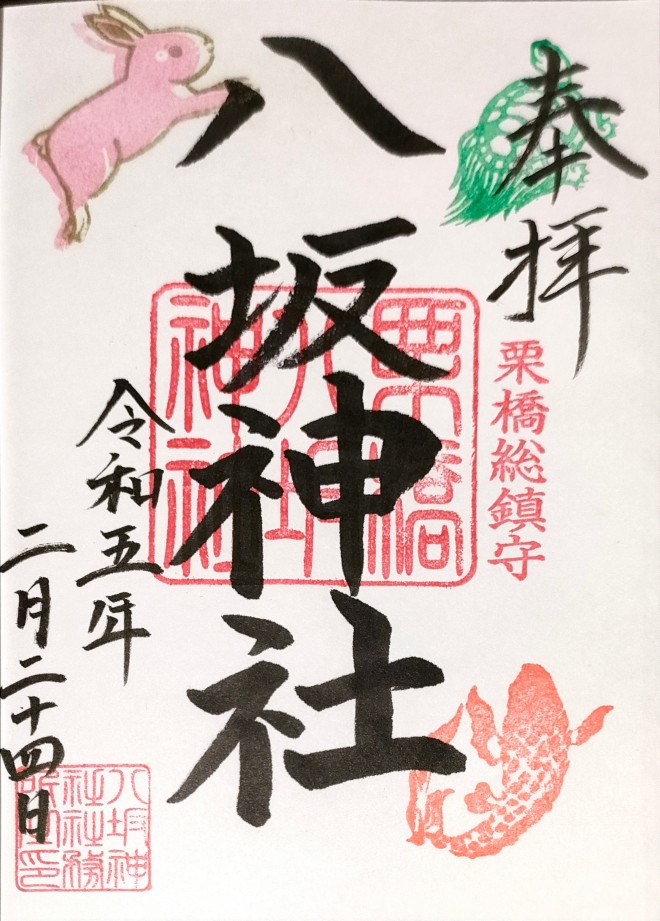 奉拝
栗橋総鎮守
八坂神社
栗橋
八坂
神社
令和五年
二月二十四日
八坂神
社社務
所之印